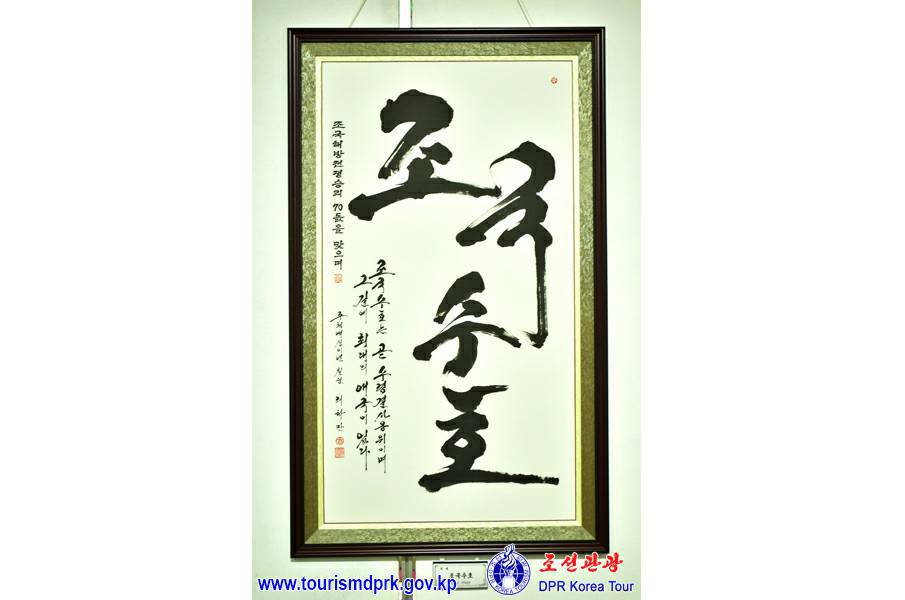 조국수호
조국수호는 곧 수령결사옹위이며
그길에 최대의 애국이 있다
조국해방전쟁승리 70돐을 맞으며
주체백십이년 칠월
조국수호
www.tourismdprk.gov.kp
조선관광
DPR Korea Tour